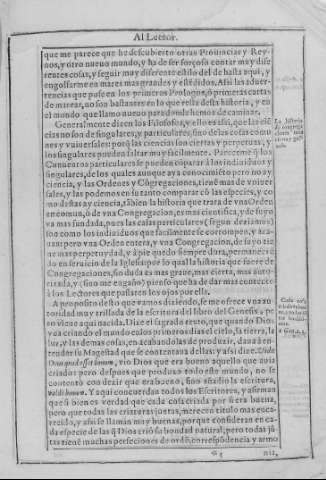 Al Lector.
que me parece que he descubierto otras Prouincias y Rey-
nos, y otro nueuo mundo, y ha de ser forçoso contar muy dife
rentes cosas, y seguir muy diferente estilo del de hasta aqui, y
engolfarme en mares mas grandes y estẽdidos. Assi las aduer-
tencias que puse en los primeros Prologos, ò primeras cartas
de marear, no son bastantes en lo que resta desta historia, y en
el mundo que llamo nueuo para donde hemos de caminar.
Generalmente dizen los Filosofos, y ello es assi, que las ciẽ
cias no son de singulares, y particulares, sino de las cosas comu
nes y vniuersales: porq̃ las ciencias son ciertas y perpetuas, y
los singulares pueden faltar muy facilmente. Pareceme q̃ los
Conuentos particulares se pueden cõparar à los indiuiduos y
singulares, de los quales aunque aya conocimiẽto pero no ay
ciencia, y las Ordenes y Cõgregaciones, tienẽ mas de vniuer-
sales, y las podemos en su tanto comparar cõ las especies, y co
mo destas ay ciencia, tãbien la historia que trata de vna Orden
en comun, ò de vna Congregacion, es mas cientifica, y de suyo
va mas fundada, pues las casas particulares (segun deziamos)
son como los indiuiduos que facilmente se corrompen, y aca-
uan: pero vna Orden entera, y vna Congregacion, de suyo tie
ne mas perpetuydad, y à pie quedo siempre dura, permanecie
do en seruicio de la Iglesia: por lo qual la historia que fuere de
Congregaciones, sin duda es mas graue, mas cierta, mas auto-
rizada, y (sino me engaño) pienso que ha de dar mas contento
à los Lectores que passaren los ojos por ella.
A proposito desto que vamos diziendo, se me ofrece vna au
toridad muy trillada de la escritura del libro del Genesis, pe
ro viene aqui nacida. Dize el sagrado texto, que quando Dios
yua criando el mundo en los primeros dias el cielo, la tierra, la
luz, y las demas cosas, en acabandolas de produzir, daua à en-
tender su Magestad que se contentaua dellas: y assi dize. Vidit
Deus quod esset bonum, vio Dios que era bueno aquello que auia
criado: pero despues que produxo todo este mundo, no se
contentò con dezir que era bueno, sino añadio la escritura,
Valdè bonum. Y aqui concuerdan todos los Escritores, y afirman
que si bien es verdad que cada cosa criada por si era buena,
pero que todas las criaturas juntas, merecen titulo mas enca-
recido, y assi se llaman muy buenas, porque consideran en ca-
da especie de las q̃ Dios criò su bondad natural; pero todas jũ-
tas tienẽ muchas perfeciones de ordẽ, correspõdencia y armo
nia,
La historia